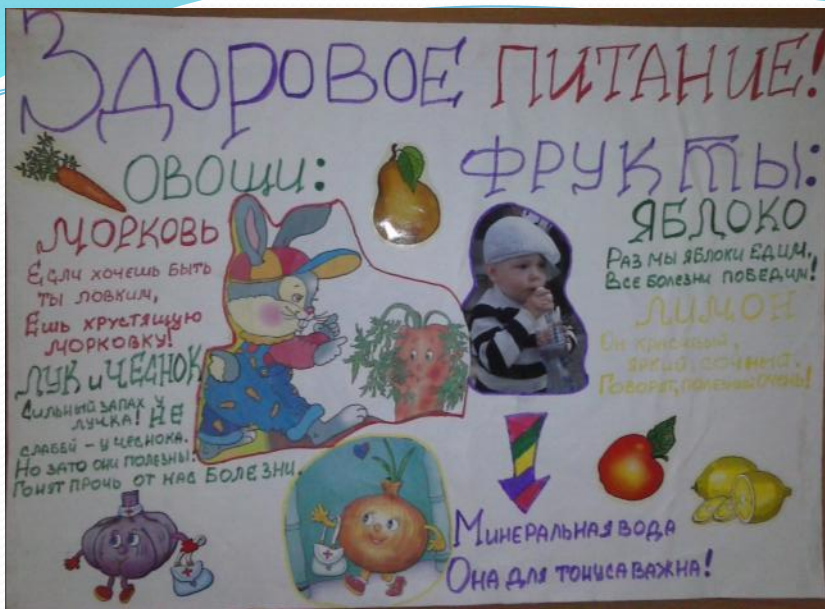 ЗДОРОВОЕ ПИТАНИЕ!
ОВОЩИ:
МОРКОВЬ
ЕСЛИ ХОЧЕШЬ БЫТЬ
ТЫ ЛОВКИМ,
ЕШЬ ХРУСТЯЩУЮ
МОРКОВКУ!
ЛУК И ЧЕСНОК
СИЛЬНЫЙ ЗАПАХ У
ЛУЧКА! НЕ
СЛАБЕЙ – У ЧЕСНОКА.
НО ЗАТО ОНИ ПОЛЕЗНЫ:
ГОНЯТ ПРОЧЬ ОТ НАС БОЛЕЗНИ.
ФРУКТЫ:
ЯБЛОКО
РАЗ МЫ ЯБЛОКИ ЕДИМ,
ВСЕ БОЛЕЗНИ ПОБЕДИМ!
ЛИМОН
ОН КРАСИВЫЙ,
ЯРКИЙ, СОЧНЫЙ,
ГОВОРЯТ, ПОЛЕЗНЫЙ ОЧЕНЬ!
МИНЕРАЛЬНАЯ ВОДА
ОНА ДЛЯ ТОНУСА ВАЖНА!